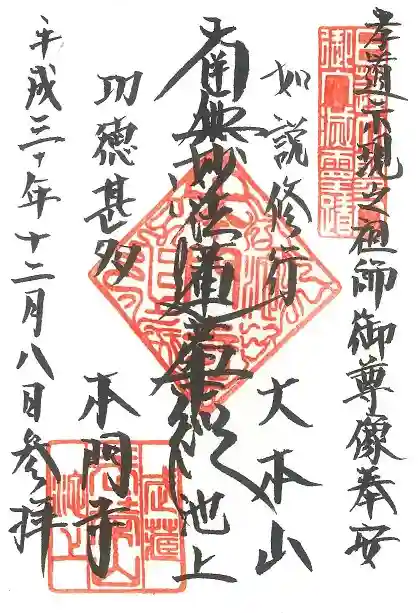 孝道示現之祖師御尊像奉安
日蓮大聖人
御入滅霊蹟
如説修行
大本山
南無妙法蓮華経
池上
功徳甚多
本門寺
平成三十年十二月八日参拝